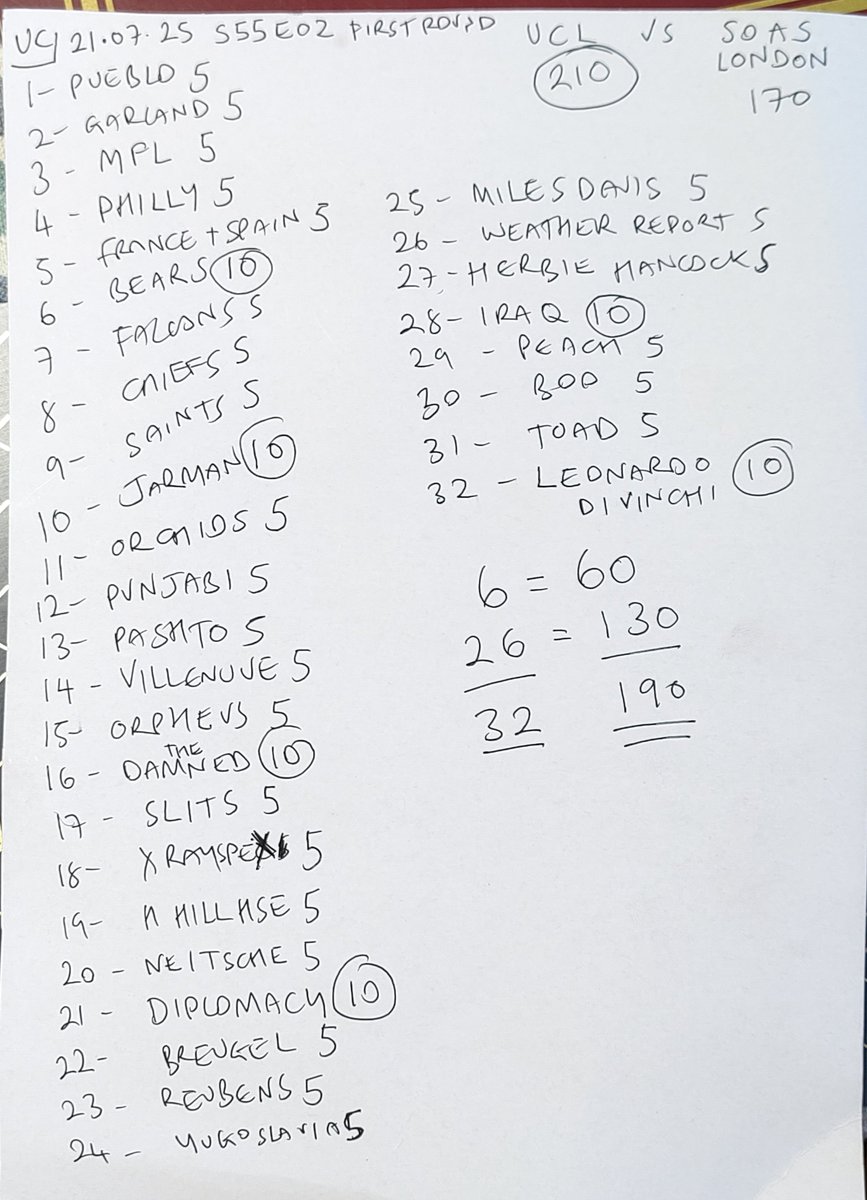 UC 21.07.25 S55E02 FIRST ROUND UCL VS SOAS LONDON
210 170
1- PUEBLO 5
2- GARLAND 5
3 - MPL 5
4 - PHILLY 5
5 - FRANCE + SPAIN 5
6 - BEARS 10
7 - FALCONS 5
8 - CHIEFS 5
9- SAINTS 5
10 - JARMAN 10
11- ORCHIDS 5
12- PUNJABI 5
13- PASHTO 5
14 - VILLENUVE 5
15- ORPHEUS 5
16- THE DAMNED 10
17 - SLITS 5
18- X RAYSPEX 5
19- H HILL HSE 5
20 - NEITSCHE 5
21 - DIPLOMACY 10
22- BREUGEL 5
23 - REUBENS 5
24 - YUGOSLAVIA 5
25 - MILES DAVIS 5
26 - WEATHER REPORT 5
27 - HERBIE HANCOCK 5
28 - IRAQ 10
29 - PEACH 5
30 - BOO 5
31 - TOAD 5
32 - LEONARDO 10
DI VINCHI
6 = 60
26 = 130
32 190